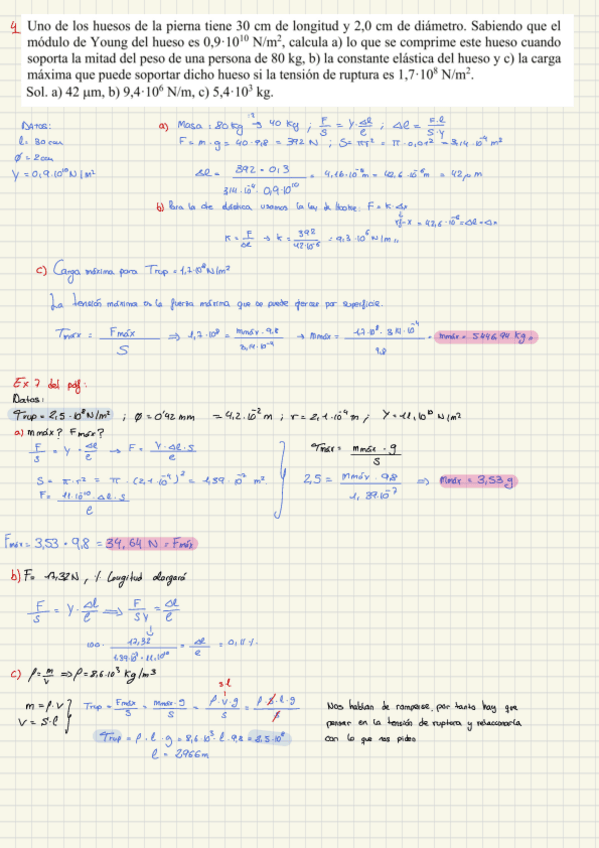 4 Uno de los huesos de la pierna tiene 30 cm de longitud y 2,0 cm de diámetro. Sabiendo que el
módulo de Young del hueso es 0,9·10¹⁰ N/m², calcula a) lo que se comprime este hueso cuando
soporta la mitad del peso de una persona de 80 kg, b) la constante elástica del hueso y c) la carga
máxima que puede soportar dicho hueso si la tensión de ruptura es 1,7·10⁸ N/m².
Sol. a) 42 μm, b) 9,4·10⁶ N/m, c) 5,4·10³ kg.
DATOS:
l = 30 cm
Ø = 2 cm
Y = 0,9·10¹⁰ N/m²
a) Masa: 80 kg → 40 kg ; F/S = Y·Δl/l ; Δl = F·l/S·Y
F = m·g = 40·9,8 = 392 N ; S = πr² = π·0,01² = 3,14·10⁻⁴ m²
Δl = 392·0,3 / 3,14·10⁻⁴·0,9·10¹⁰ = 42 μm
b) Para la cte elástica usamos la ley de Hooke: F = K·Δx
K = F/Δl → K = 392/42·10⁻⁶ = 9,3·10⁶ N/m
c) Carga máxima para Trup = 1,7·10⁸ N/m²
La tensión máxima es la fuerza máxima que se puede ejercer por superficie.
Tmáx = Fmáx/S ⇒ 1,7·10⁸ = mmáx·9,8 / 3,14·10⁻⁴ → mmáx = 1,7·10⁸·3,14·10⁻⁴ / 9,8 = mmáx = 5446,94 kg
Ex 7 del pdf:
Datos:
Trup = 2,5·10⁸ N/m² ; Ø = 0'42 mm = 4,2·10⁻² m ; r = 2,1·10⁻⁴ m ; Y = 11·10¹⁰ N/m²
a) mmáx? Fmáx?
F/S = Y·Δl/l → F = Y·Δl·S/l
S = π·r² = π·(2,1·10⁻⁴)² = 1,39·10⁻⁷ m²
F = 11·10¹⁰·Δl·S/l
Tmáx = mmáx·g/S
2,5 = mmáx·9,8 / 1,39·10⁻⁷ ⇒ mmáx = 3,53 g
Fmáx = 3,53·9,8 = 34,64 N = Fmáx
b) F = 17,32 N, % longitud alargará
F/S = Y·Δl/l ⇒ F/SY = Δl/l
100· 17,32 / 1,39·10⁻⁷·11·10¹⁰ = Δl/l = 0,11%
c) ρ = m/v ⇒ ρ = 8,6·10³ kg/m³
m = ρ·V
V = S·l
s·l
Trup = Fmáx/S = mmáx·g/S = ρ·V·g/S = ρ·S·l·g/S
Trup = ρ·l·g = 8,6·10³·l·9,8 = 2,5·10⁸
l = 2966 m
Nos hablan de romperse, por tanto hay que
pensar en la tensión de ruptura y relacionarla
con lo que nos piden